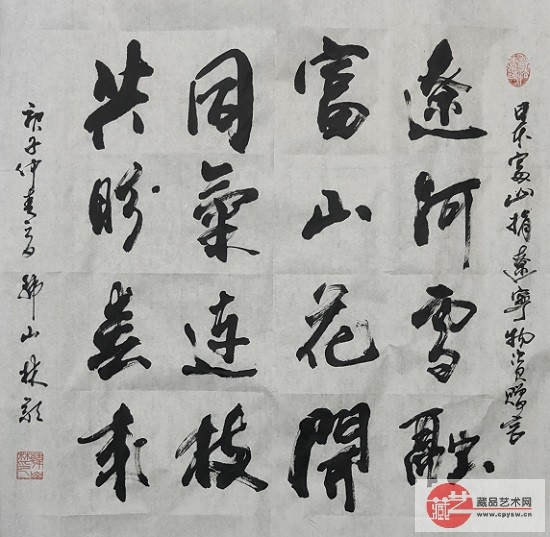 日本富山捐遼寧物资贈言
遼河雪融
富山花開
同氣连枝
共盼春来
庚子仲春 山林
藏品艺术网
www.cpysw.cn